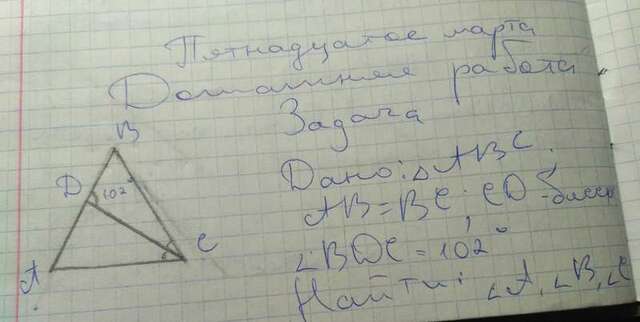 Пятнадцатое марта
Домашняя работа
Задача
B
D
102°
A
C
Дано: △ABC.
AB=BC; CD - бисс
∠BDC = 102°
Найти: ∠A, ∠B, ∠C